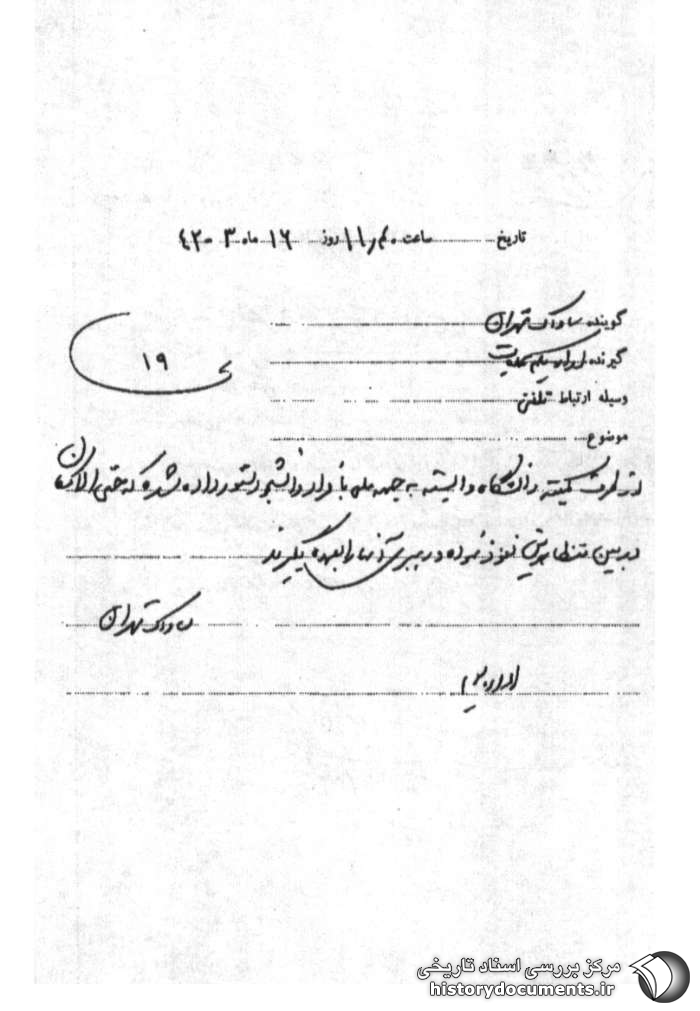 تاریخ ساعت ۱۱٫۴۰ روز ۱۶ ماه ۳ - ۴۲
گوینده ساواک تهران
گیرنده اداره یکم عملیات
۱۹
وسیله ارتباط تلفنی
موضوع
از طرف کمیته دانشگاه وابسته به جبهه ملی بافراد دانشجو دستور داده شده که حتی الامکان
در بین متظاهرین نفوذ نموده و رهبری آنها را بعهده بگیرند
ساواک تهران
اداره سوم
مرکز بررسی اسناد تاریخی
historydocuments.ir